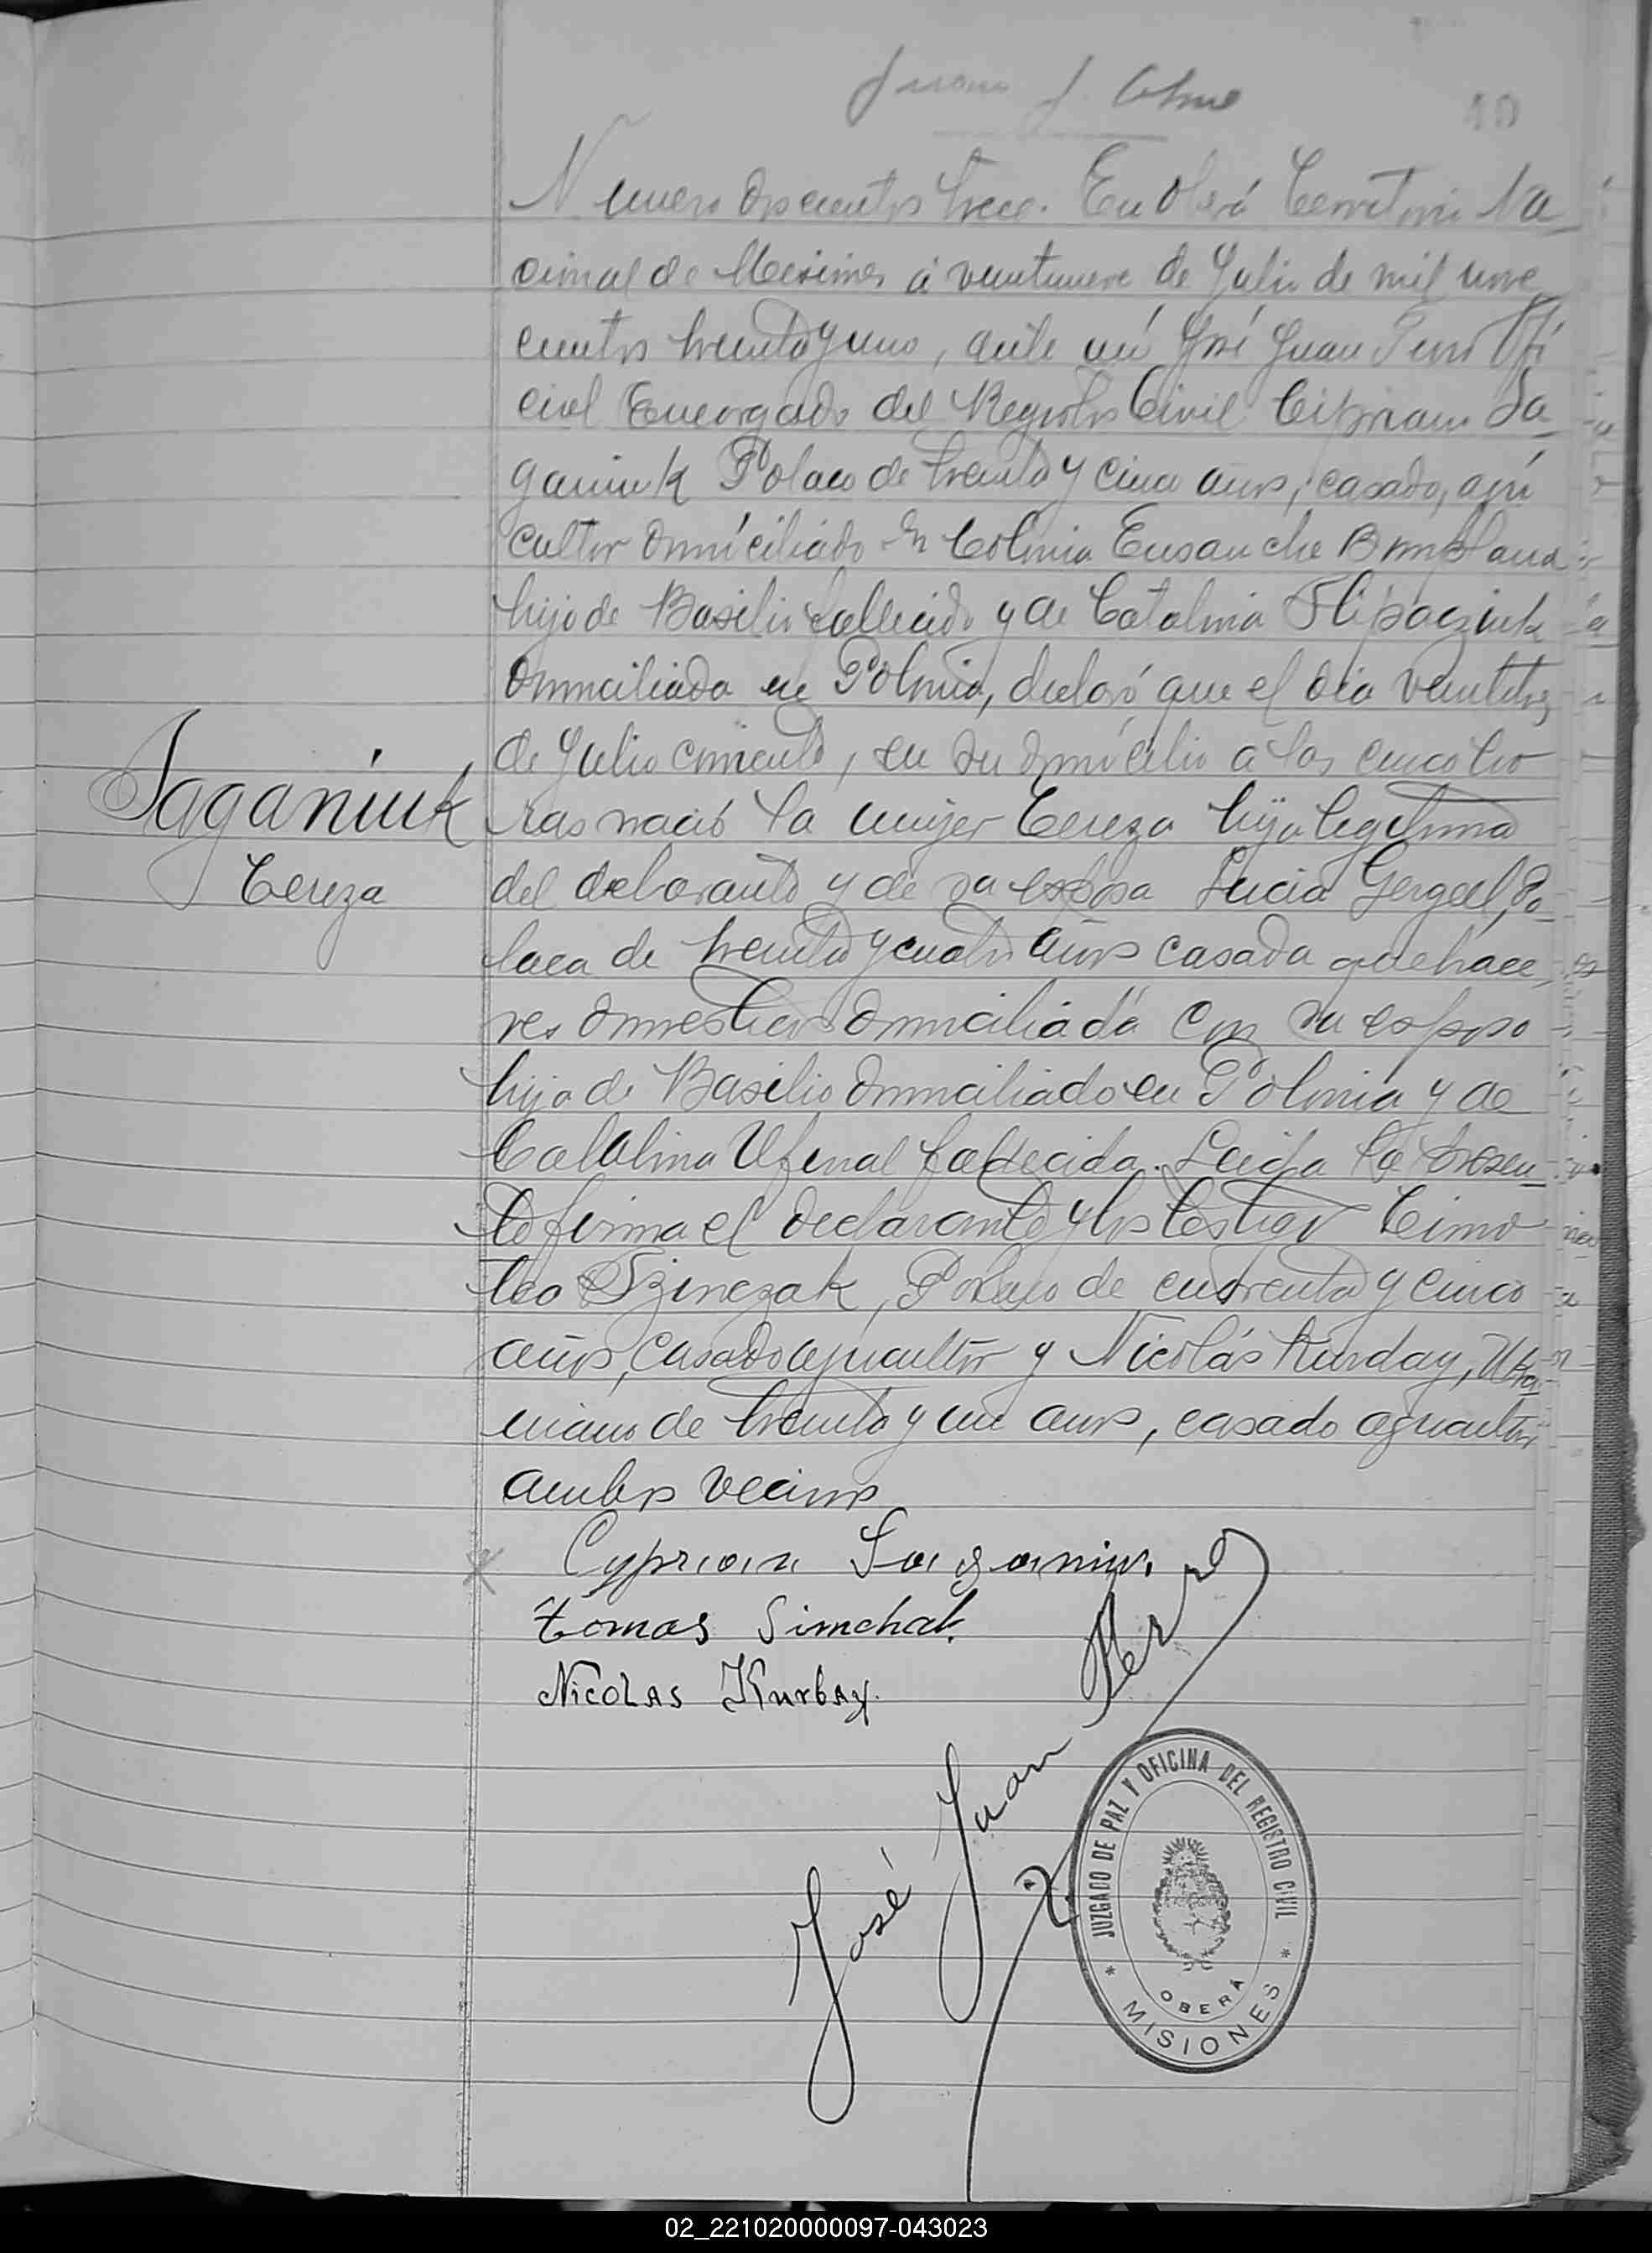 10
Numero doscientos trece. En Oberá Territorio Na
cional de Misiones á veintinueve de Julio de mil nove
cientos treinta y uno, ante mí José Juan Perro Ofi
cial Encargado del Registro Civil Cipriano Sa
ganiuk Polaco de treinta y cinco años, casado, agri
cultor domiciliado en Colonia Ensanche Bompland
hijo de Basilio fallecido y de Catalina
domiciliada en Polonia, declaró que el dia veintitres
de Julio corriente, en su domicilio a las cinco ho
ras nació la mujer Tereza hija legitima
del declarante y de su esposa Lucia Gergeel, Po
laca de treinta y cuatro años casada quehace
res domesticos domiciliada con su esposo
hija de Basilio domiciliado en Polonia y de
Catalina Ufenal fallecida. Leida la presen
te firma el declarante y los testigos Timo
teo Szinczak, Polaco de cuarenta y cinco
años, casado agricultor y Nicolás Kurday, Ukra
niano de treinta y un años, casado agricultor
ambos vecinos
Saganiuk
Tereza
Cyprian Saganiuk
tomas Simchak
Nicolas Kurbay.
José Juan Perro
JUZGADO DE PAZ Y OFICINA DEL REGISTRO CIVIL
* OBERÁ *
MISIONES
02_221020000097-043023